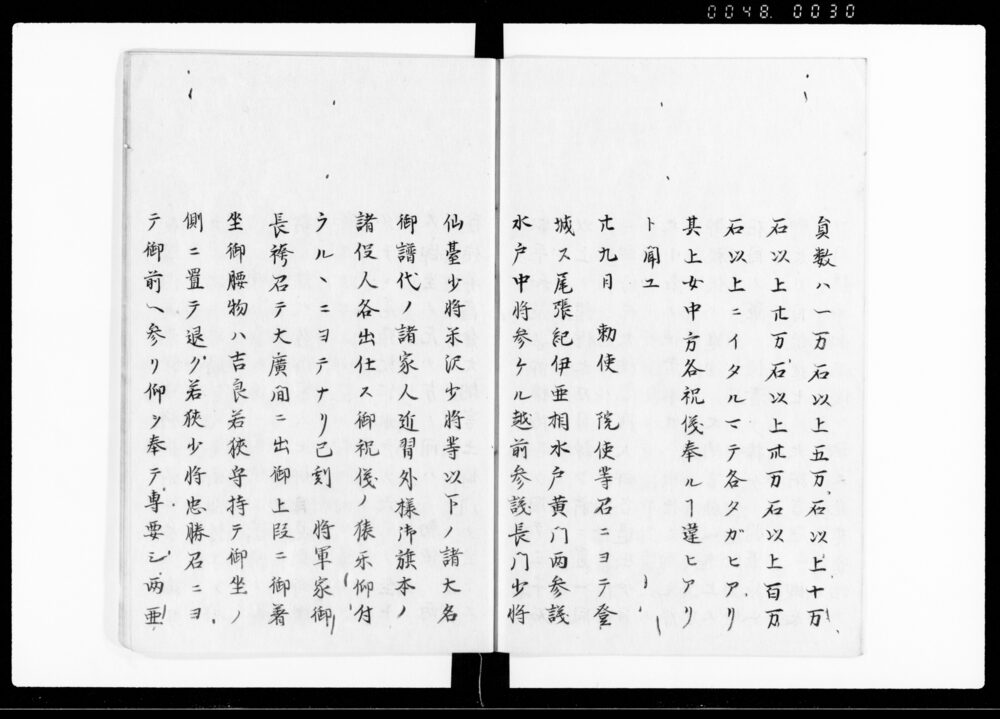 0048. 0030
員数ハ一万石以上五万石以上十万
石以上廿万石以上卅万石以上百万
石以上ニイタルマテ各タガヒアリ
其上女中方各祝儀奉ルヿ蓮ヒアリ
ト聞エ
廿九日　勅使　院使等召ニヨテ登
城ス尾張紀伊亜相水戸黄門両参議
水戸中将参ケル越前参議長門少将
仙臺少将米沢少将等以下ノ諸大名
御譜代ノ諸家人近習外様御旗本ノ
諸役人各出仕ス御祝儀ノ猿楽仰付
ラルヽニヨテナリ已刻　将軍家御
長袴召テ大廣間ニ出御上段ニ御着
坐御腰物ハ吉良若狭守持テ御坐ノ
側ニ置テ退ク若狭少将忠勝召ニヨ
テ御前ヘ参リ仰ヲ奉テ専要シ両亜